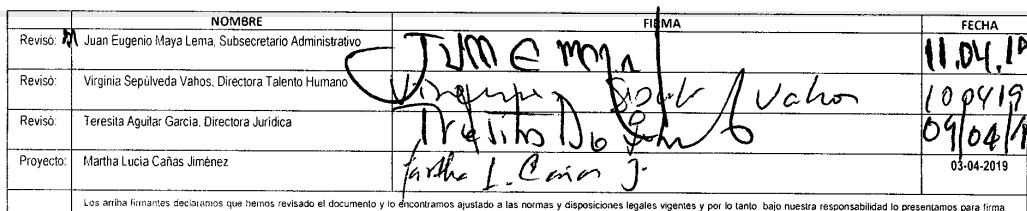 NOMBRE FIRMA FECHA
Revisó: Juan Eugenio Maya Lema, Subsecretario Administrativo 11.04.19
Revisó: Virginia Sepúlveda Vahos, Directora Talento Humano Vahos 100419
Revisó: Teresita Aguilar García, Directora Jurídica 09/04/1
Proyecto: Martha Lucia Cañas Jiménez Martha L. Cañas J. 03-04-2019
Los arriba firmantes declaramos que hemos revisado el documento y lo encontramos ajustado a las normas y disposiciones legales vigentes y por lo tanto bajo nuestra responsabilidad lo presentamos para firma